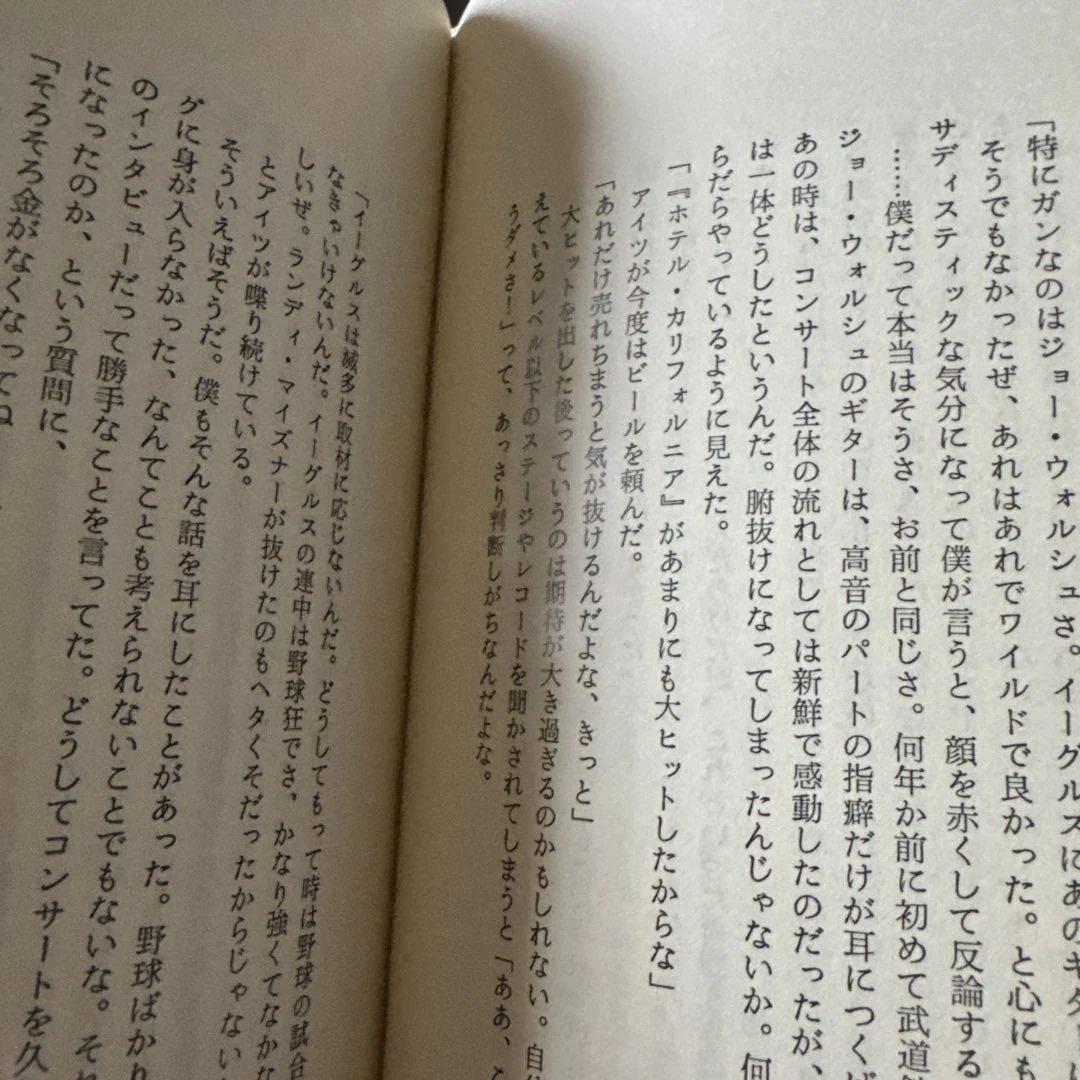 「特にガンなのはジョー・ウォルシュさ。イーグルスにあのギター
そうでもなかったぜ、あれはあれでワイルドで良かった。と心にも
サディスティックな気分になって僕が言うと、顔を赤くして反論する
……僕だって本当はそうさ、お前と同じさ。何年か前に初めて武道
ジョー・ウォルシュのギターは、高音のパートの指癖だけが耳につく
あの時は、コンサート全体の流れとしては新鮮で感動したのだったが、
は一体どうしたというんだ。腑抜けになってしまったんじゃないか。何
らだらやっているように見えた。
「『ホテル・カリフォルニア』があまりにも大ヒットしたからな」
アイツが今度はビールを頼んだ。
「あれだけ売れちまうと気が抜けるんだよな、きっと」
大ヒットを出した後っていうのは期待が大き過ぎるのかもしれない。自
えているレベル以下のステージやレコードを聞かされてしまうと「ああ、こ
うダメさ！」って、あっさり判断しがちなんだよな。
「イーグルスは滅多に取材に応じないんだ。どうしてもって時は野球の試合
なきゃいけないんだ。イーグルスの連中は野球狂でさ、かなり強くてなかな
しいぜ。ランディ・マイズナーが抜けたのもヘタくそだったからじゃない
とアイツが喋り続けている。
そういえばそうだ。僕もそんな話を耳にしたことがあった。野球ばかり
グに身が入らなかった、なんてことも考えられないことでもないな。それ
のインタビューだって勝手なことを言ってた。どうしてコンサートを久
になったのか、という質問に、
「そろそろ金がなくなってね